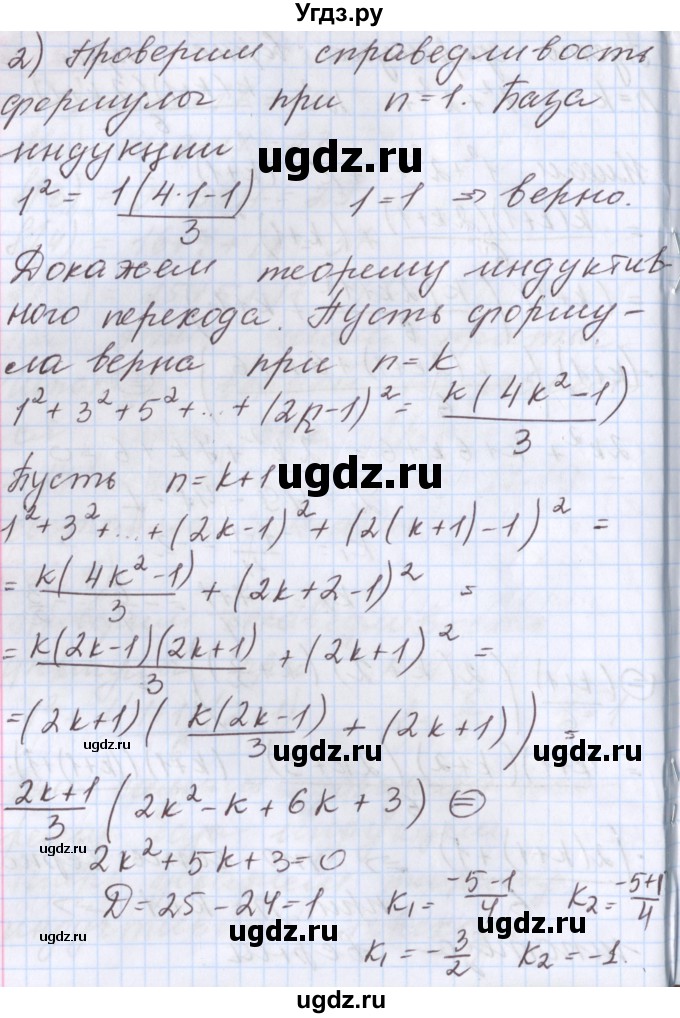 Угдз.ру
2) Проверим справедливость
формулы при n=1. База
индукции
1² = 1(4·1-1)/3 1=1 ⇒ верно.
Докажем теорему индуктив-
ного перехода. Пусть форму-
ла верна при n=k
1²+3²+5²+...+(2k-1)² = k(4k²-1)/3
Пусть n=k+1
1²+3²+...+(2k-1)²+(2(k+1)-1)² =
= k(4k²-1)/3 + (2k+2-1)² =
= k(2k-1)(2k+1)/3 + (2k+1)² =
=(2k+1)( k(2k-1)/3 + (2k+1)) =
(2k+1)/3 (2k²-k+6k+3) ⊜
2k²+5k+3=0
D=25-24=1 k₁=(-5-1)/4 k₂=(-5+1)/4
k₁=-3/2 k₂=-1.
ugdz.ru